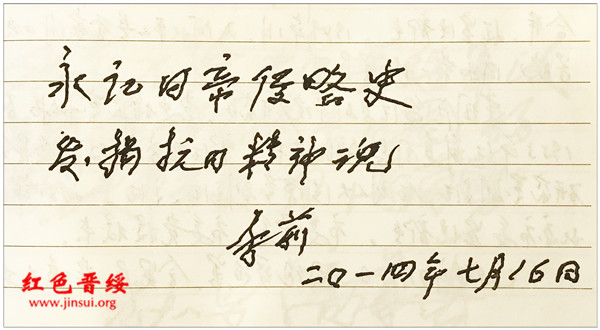 永记日帝侵略史
发揭抗日精神魂
李前
二〇一四年七月16日
红色晋绥
www.jinsui.org